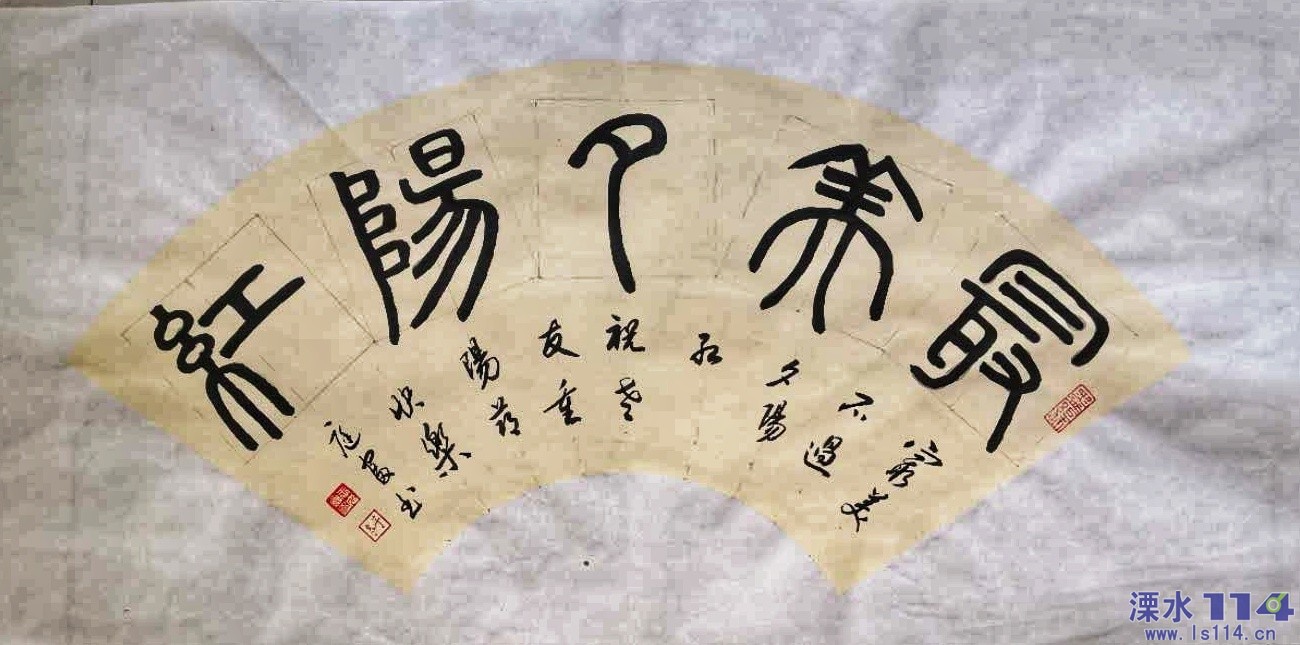 最美夕陽紅
最美
不過
夕陽
红
祝老
友重
陽節
快樂
书
溧水114
www.ls114.cn